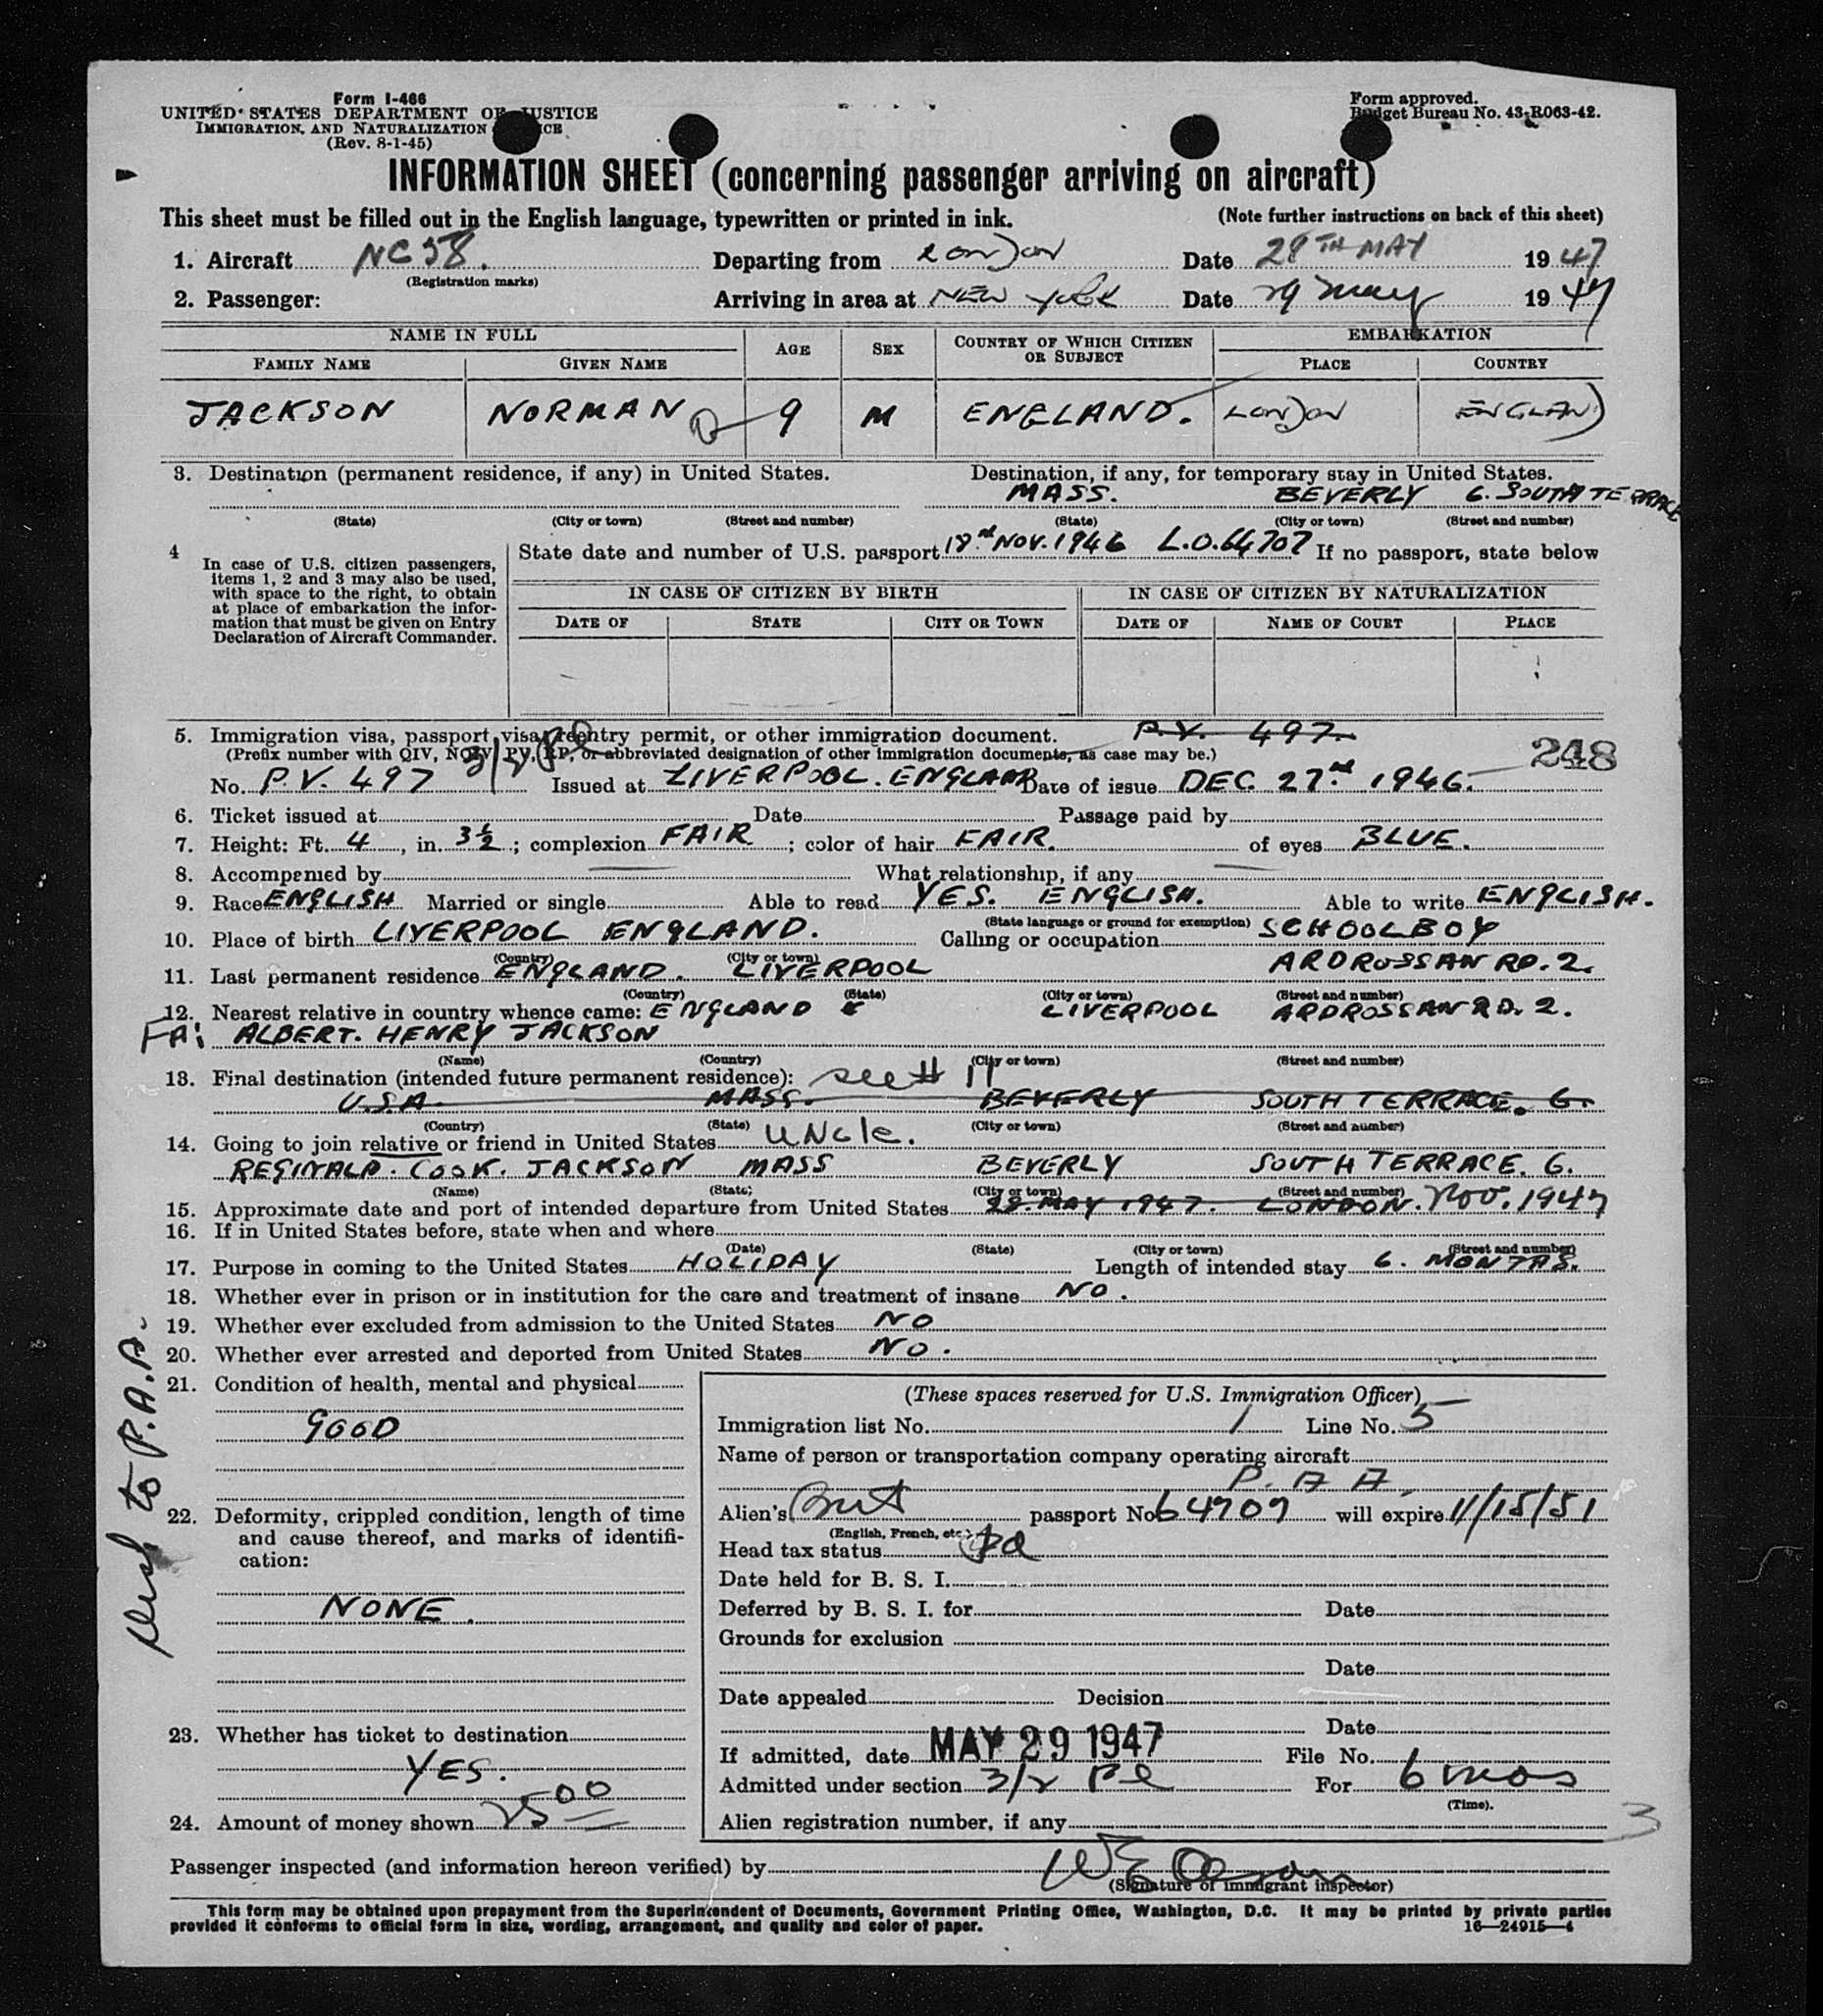 Form I-466
UNITED STATES DEPARTMENT OF JUSTICE
IMMIGRATION AND NATURALIZATION
(Rev. 8-1-45)
Form approved.
Budget Bureau No. 43-R063-42.
INFORMATION SHEET (concerning passenger arriving on aircraft)
This sheet must be filled out in the English language, typewritten or printed in ink. (Note further instructions on back of this sheet)
1. Aircraft NC58. Departing from LONDON Date 28TH MAY 1947
(Registration marks)
2. Passenger: Arriving in area at NEW YORK Date 29 May 1947
NAME IN FULL AGE SEX COUNTRY OF WHICH CITIZEN OR SUBJECT EMBARKATION
FAMILY NAME GIVEN NAME PLACE COUNTRY
JACKSON NORMAN 9 M ENGLAND. LONDON ENGLAND
3. Destination (permanent residence, if any) in United States. Destination, if any, for temporary stay in United States.
MASS. BEVERLY 6. SOUTH TERRACE
(State) (City or town) (Street and number) (State) (City or town) (Street and number)
4 In case of U.S. citizen passengers, items 1, 2 and 3 may also be used, with space to the right, to obtain at place of embarkation the information that must be given on Entry Declaration of Aircraft Commander.
State date and number of U.S. passport 18.nd NOV. 1946 L.O.64707 If no passport, state below
IN CASE OF CITIZEN BY BIRTH IN CASE OF CITIZEN BY NATURALIZATION
DATE OF STATE CITY OR TOWN DATE OF NAME OF COURT PLACE
5. Immigration visa, passport visa, reentry permit, or other immigration document. P.V. 497.
(Prefix number with QIV, NQIV, PV, RP, or abbreviated designation of other immigration documents, as case may be.)
3/2 Pl
248
No. P.V. 497 Issued at LIVERPOOL. ENGLAND Date of issue DEC. 27.nd 1946.
6. Ticket issued at Date Passage paid by
7. Height: Ft. 4, in. 3½; complexion FAIR; color of hair FAIR. of eyes BLUE.
8. Accompanied by What relationship, if any
9. Race ENGLISH Married or single Able to read YES. ENGLISH. Able to write ENGLISH.
(State language or ground for exemption)
10. Place of birth LIVERPOOL ENGLAND. Calling or occupation SCHOOLBOY
(Country) (City or town)
11. Last permanent residence ENGLAND. LIVERPOOL ARDROSSAN RD. 2.
(Country) (State) (City or town) (Street and number)
12. Nearest relative in country whence came: ENGLAND LIVERPOOL ARDROSSAN RD. 2.
FA: ALBERT. HENRY JACKSON
(Name) (Country) (City or town) (Street and number)
13. Final destination (intended future permanent residence): see # 11
U.S.A. MASS. BEVERLY SOUTH TERRACE. 6.
(Country) (State) (City or town) (Street and number)
14. Going to join relative or friend in United States UNcle.
REGINALD. COOK. JACKSON MASS BEVERLY SOUTH TERRACE. 6.
(Name) (State) (City or town) (Street and number)
15. Approximate date and port of intended departure from United States 28. MAY 1947. LONDON. Nov. 1947
16. If in United States before, state when and where
(Date) (State) (City or town) (Street and number)
17. Purpose in coming to the United States HOLIDAY Length of intended stay 6. MONTHS.
18. Whether ever in prison or in institution for the care and treatment of insane NO.
19. Whether ever excluded from admission to the United States NO
20. Whether ever arrested and deported from United States NO.
21. Condition of health, mental and physical
GOOD
22. Deformity, crippled condition, length of time and cause thereof, and marks of identification:
NONE.
23. Whether has ticket to destination
YES.
24. Amount of money shown 25 00
to P.A.A.
(These spaces reserved for U.S. Immigration Officer)
Immigration list No. 1 Line No. 5
Name of person or transportation company operating aircraft
P. A A.
Alien's Brit passport No 64707 will expire 11/15/51
(English, French, etc.)
Head tax status Pd
Date held for B. S. I.
Deferred by B. S. I. for Date
Grounds for exclusion
Date
Date appealed Decision
Date
If admitted, date MAY 29 1947 File No.
Admitted under section 3/2 Pl For 6 mos
(Time).
Alien registration number, if any
3
Passenger inspected (and information hereon verified) by
(Signature of immigrant inspector)
This form may be obtained upon prepayment from the Superintendent of Documents, Government Printing Office, Washington, D.C. It may be printed by private parties
provided it conforms to official form in size, wording, arrangement, and quality and color of paper. 16—24915-4